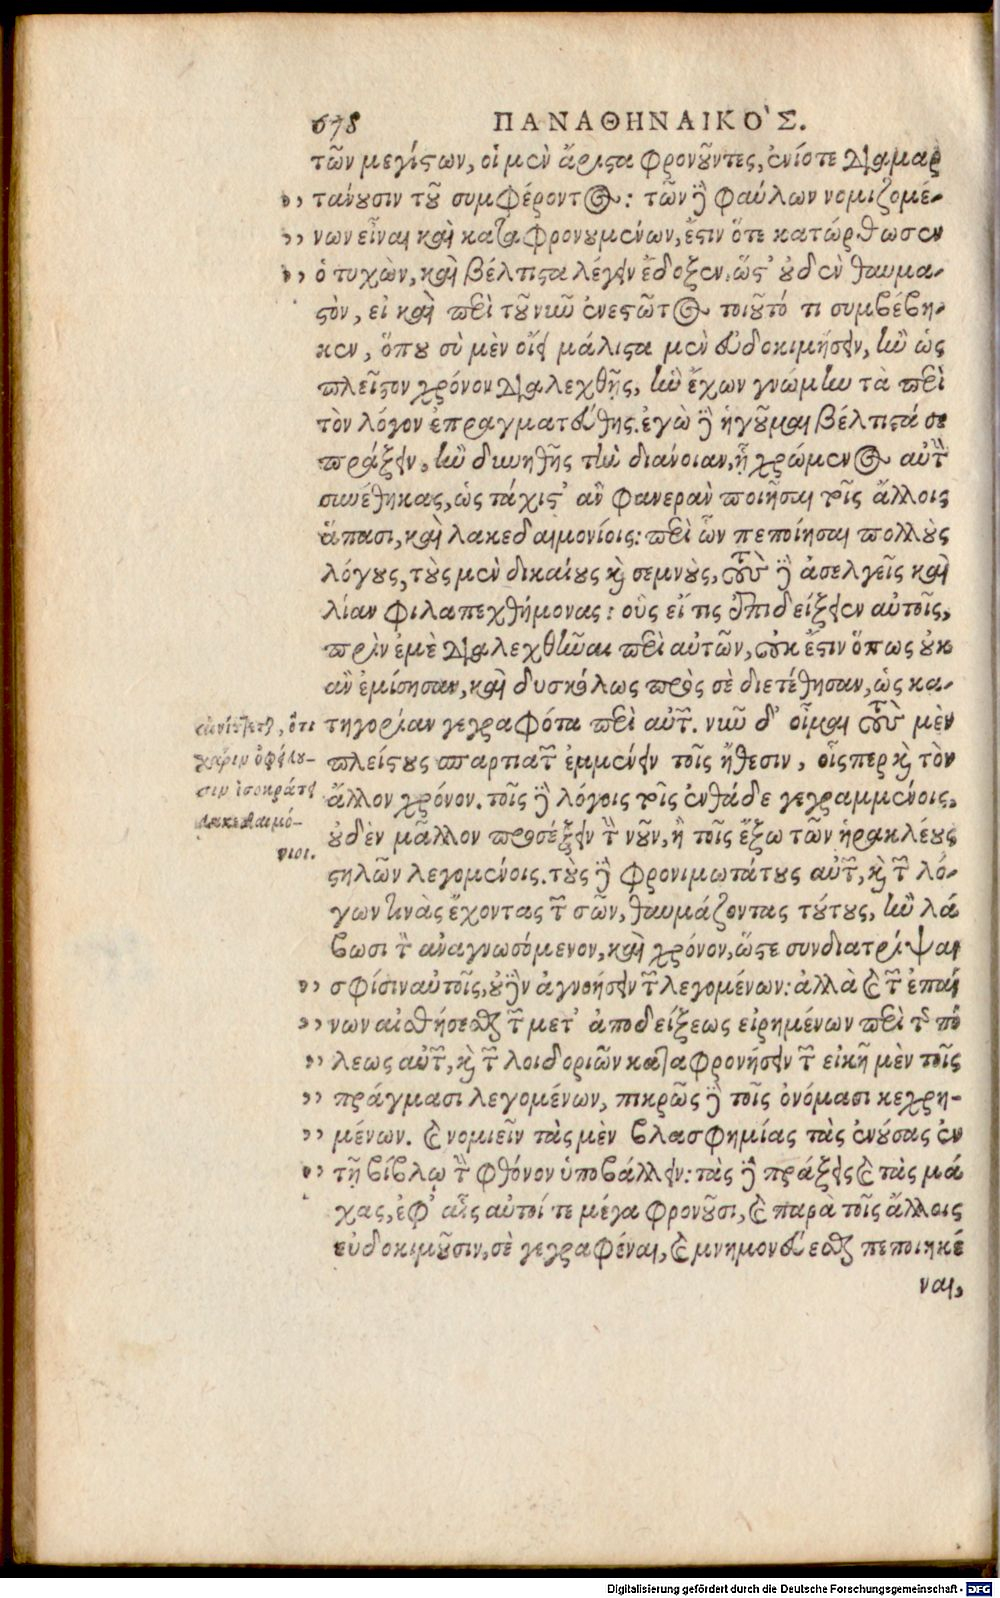 678 ΠΑΝΑΘΗΝΑΙΚΟ'Σ.
τῶν μεγίστων, οἱ μὲν ἄριστα φρονοῦντες, ἐνίοτε διαμαρ
,, τάνουσιν τοῦ συμφέροντος: τῶν δὲ φαύλων νομιζομέ-
,, νων εἶναι καὶ καταφρονουμένων, ἔστιν ὅτε κατώρθωσεν
,, ὁ τυχὼν, καὶ βέλτιστα λέγειν ἔδοξεν. ὥστ' οὐδὲν θαυμα-
στὸν, εἰ καὶ περὶ τοῦ νῦν ἐνεστῶτος τοιοῦτό τι συμβέβη-
κεν, ὅπου σὺ μὲν οἴει μάλιστα μὲν εὐδοκιμήσειν, ἢν ὡς
πλεῖστον χρόνον διαλεχθῇς, ἣν ἔχων γνώμην τὰ περὶ
τὸν λόγον ἐπραγματεύθης. ἐγὼ δὲ ἡγοῦμαι βέλτιστά σε
πράξειν, ἢν δυνηθῇς τὴν διάνοιαν, ᾗ χρώμενος αὐτὸν
συνέθηκας, ὡς τάχιστ' ἂν φανερὰν ποιῆσαι τοῖς ἄλλοις
ἅπασι, καὶ λακεδαιμονίοις: περὶ ὧν πεποίησαι πολλοὺς
λόγους, τοὺς μὲν δικαίους καὶ σεμνοὺς, τοὺς δὲ ἀσελγεῖς καὶ
λίαν φιλαπεχθήμονας: οὓς εἴ τις ἐπιδείξειεν αὐτοῖς,
πρὶν ἐμὲ διαλεχθῆναι περὶ αὐτῶν, οὐκ ἔστιν ὅπως οὐκ
ἂν ἐμίσησαν, καὶ δυσκόλως πρὸς σὲ διετέθησαν, ὡς κα-
τηγορίαν γεγραφότα περὶ αὐτῶν. νῦν δ' οἶμαι τοὺς μὲν
πλείστους σπαρτιατῶν ἐμμένειν τοῖς ἤθεσιν, οἷσπερ καὶ τὸν
ἄλλον χρόνον. τοῖς δὲ λόγοις τοῖς ἐνθάδε γεγραμμένοις,
οὐδὲν μᾶλλον προσέξειν τὸν νοῦν, ἢ τοῖς ἔξω τῶν ἡρακλέους
στηλῶν λεγομένοις. τοὺς δὲ φρονιμωτάτους αὐτῶν, καὶ τῶν λό-
γων τινὰς ἔχοντας τῶν σῶν, θαυμάζοντας τούτους, ἢν λά
βωσι τὸν ἀναγνωσόμενον, καὶ χρόνον, ὥστε συνδιατρίψαι
,, σφίσιν αὐτοῖς, οὐδὲν ἀγνοήσειν τῶν λεγομένων: ἀλλὰ καὶ τῶν ἐπαί
,, νων αἰσθήσεσθαι τῶν μετ' ἀποδείξεως εἰρημένων περὶ τῆς πό
,, λεως αὐτῶν, καὶ τῶν λοιδοριῶν καταφρονήσειν τῶν εἰκῆ μὲν τοῖς
,, πράγμασι λεγομένων, πικρῶς δὲ τοῖς ὀνόμασι κεχρη-
,, μένων. καὶ νομιεῖν τὰς μὲν βλασφημίας τὰς ἐνούσας ἐν
,, τῇ βίβλῳ τὸν φθόνον ὑποβάλλειν: τὰς δὲ πράξεις καὶ τὰς μά
χας, ἐφ' αἷς αὐτοί τε μέγα φρονοῦσι, καὶ παρὰ τοῖς ἄλλοις
εὐδοκιμοῦσιν, σὲ γεγραφέναι, καὶ μνημονεύεσθαι πεποιηκέ
ναι,
ὅτι
χάριν ὀφείλου-
σιν ἰσοκράτει
λακεδαιμό-
νιοι.
Digitalisierung gefördert durch die Deutsche Forschungsgemeinschaft - DFG